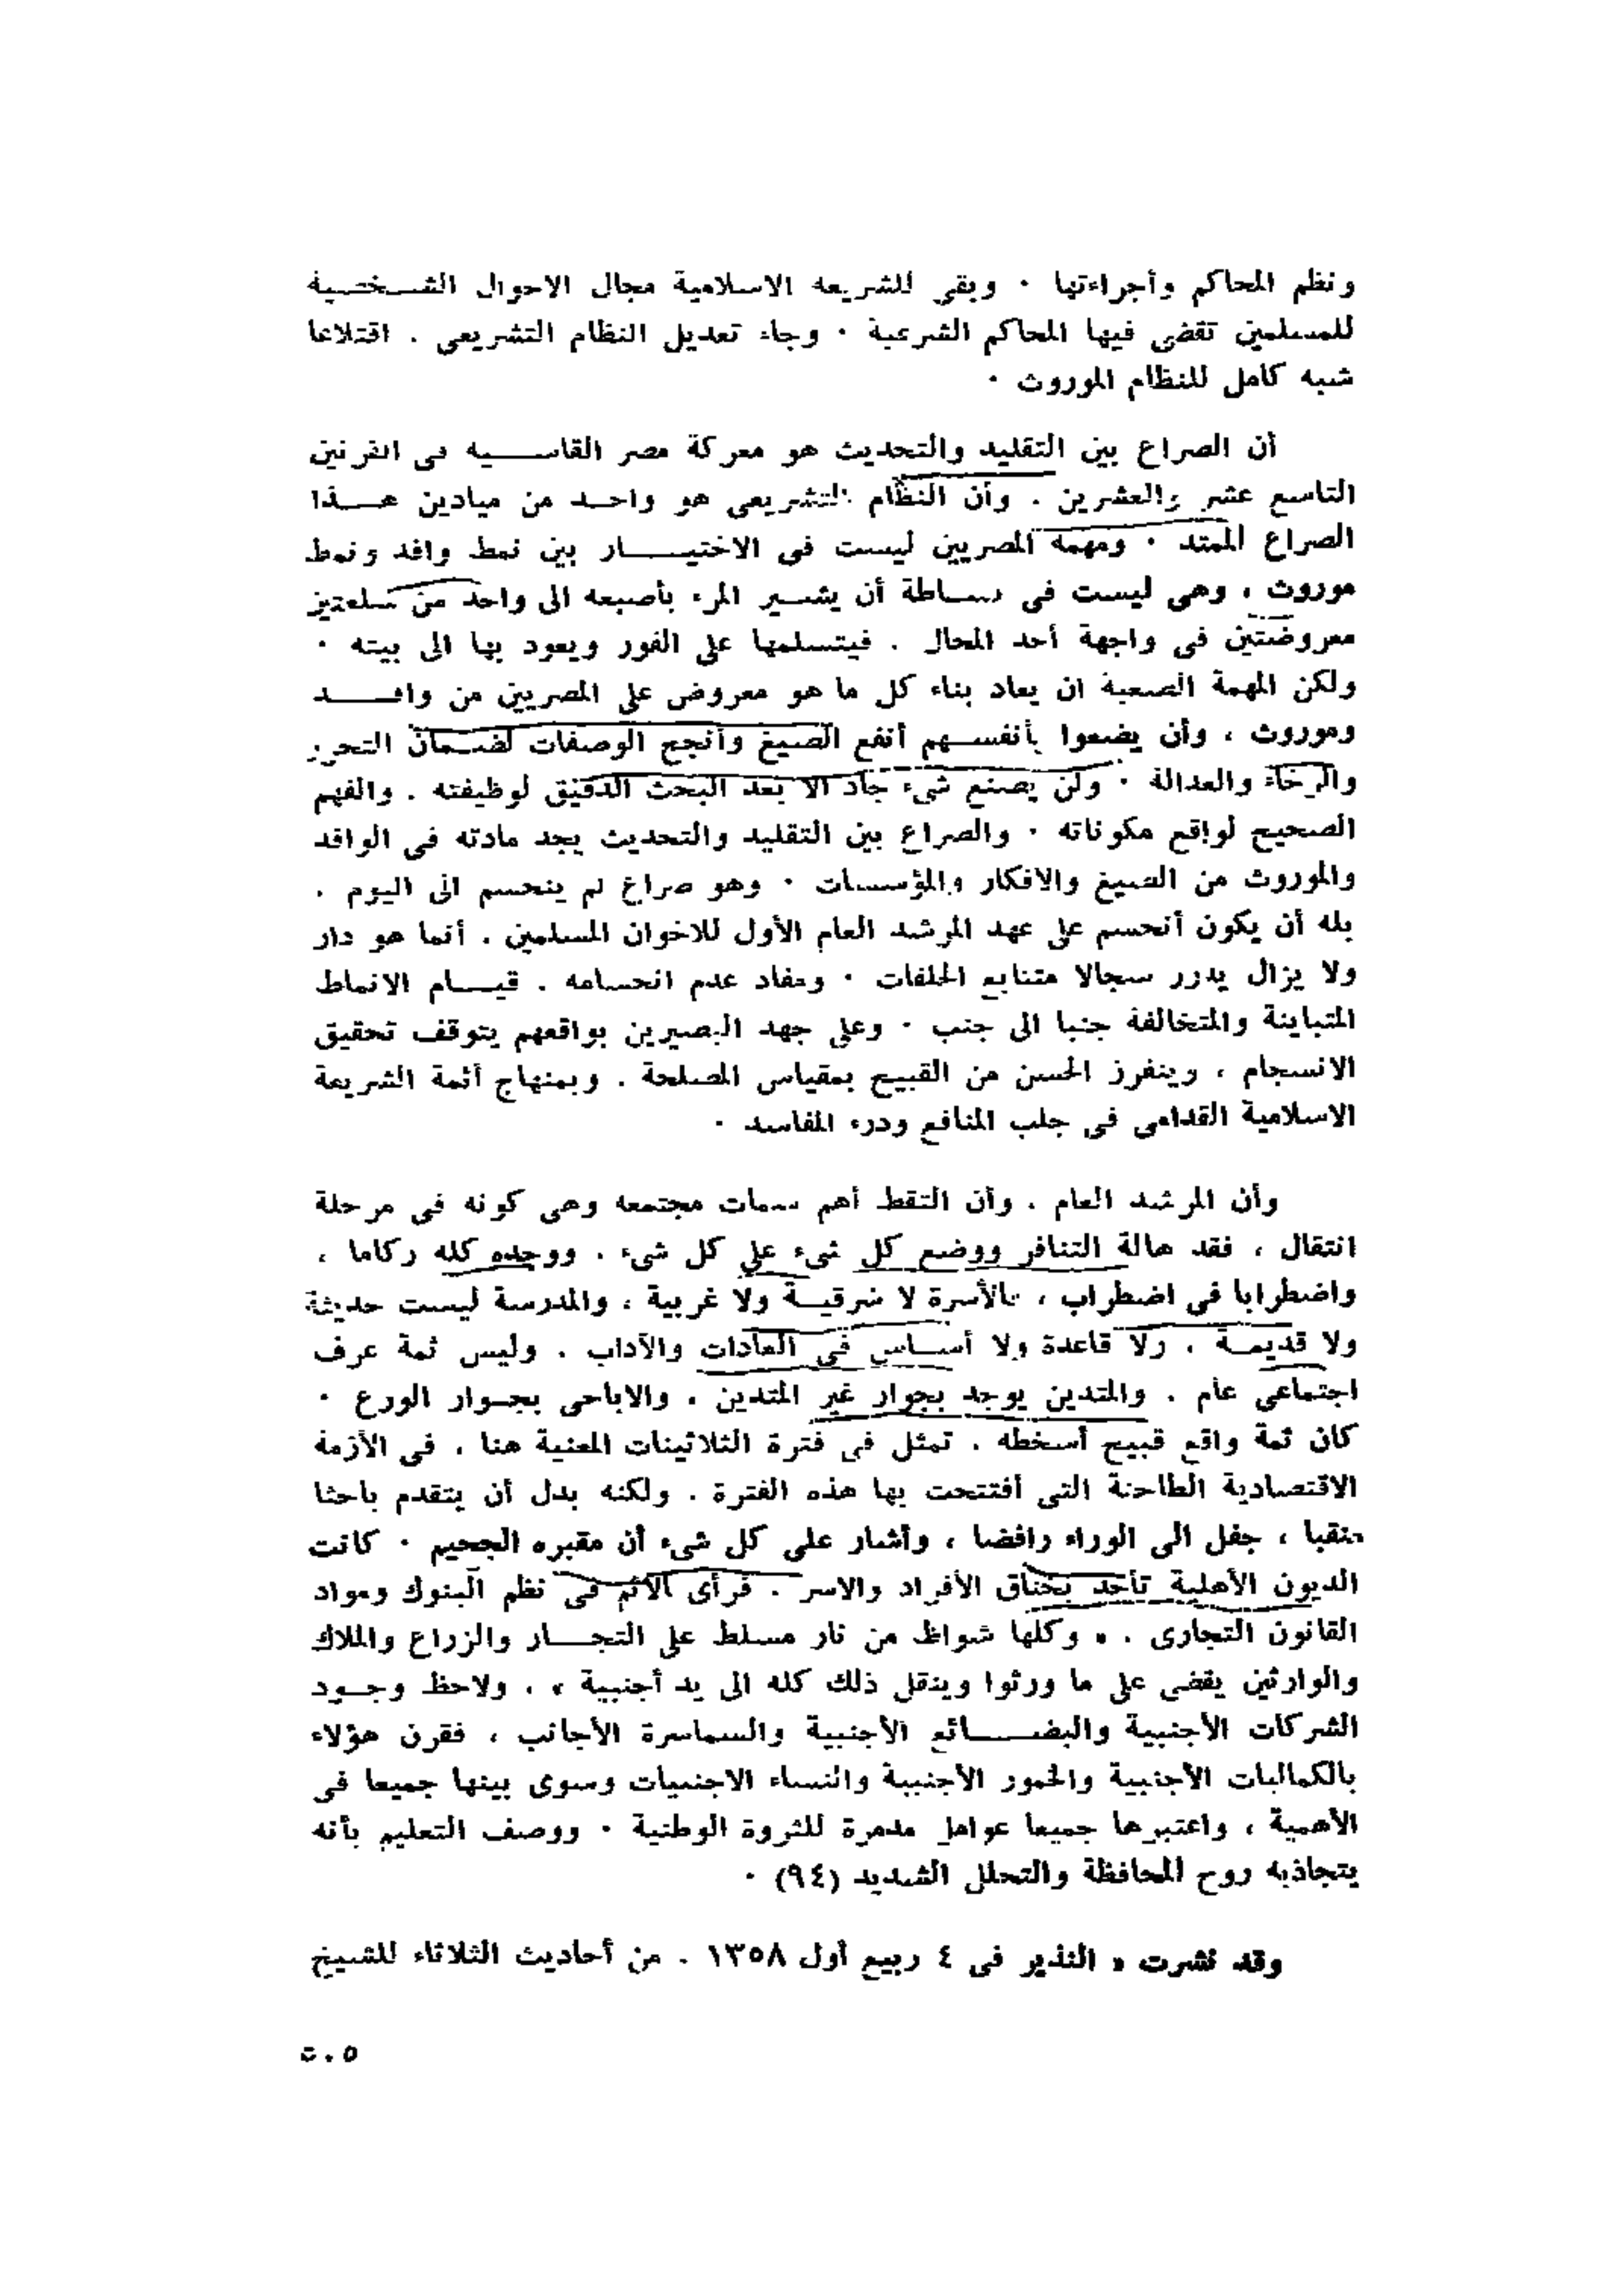 ونظم المحاكم وأجراءتها · وبقى للشريعه الاسلامية مجال الاحوال الشخصية
للمسلمين تقضى فيها المحاكم الشرعية · وجاء تعديل النظام التشريعى . اقتلاعا
شبه كامل للنظام الموروث ·
أن الصراع بين التقليد والتحديث هو معركة مصر القاسيه فى القرنين
التاسع عشر والعشرين . وأن النظام التشريعى هو واحد من ميادين هذا
الصراع الممتد · ومهمة المصريين ليست فى الاختيار بين نمط وافد ونمط
موروث ، وهى ليست فى بساطة أن يشير المرء بأصبعه الى واحد من سلعتين
معروضتين فى واجهة أحد المحال . فيتسلمها على الفور ويعود بها الى بيته ·
ولكن المهمة الصعبة ان يعاد بناء كل ما هو معروض على المصريين من وافد
وموروث ، وأن يضعوا بأنفسهم أنفع الصيغ وأنجح الوصفات لضمان التحرر
والرخاء والعدالة · ولن يصنع شىء جاد الا بعد البحث الدقيق لوظيفته . والفهم
الصحيح لواقع مكوناته · والصراع بين التقليد والتحديث يجد مادته فى الوافد
والموروث من الصيغ والافكار والمؤسسات · وهو صراع لم ينحسم الى اليوم .
بله أن يكون أنحسم على عهد المرشد العام الأول للاخوان المسلمين . أنما هو دار
ولا يزال يدور سجالا متتابع الحلقات · ومفاد عدم انحسامه . قيام الانماط
المتباينة والمتخالفة جنبا الى جنب · وعلى جهد البصيرين بواقعهم يتوقف تحقيق
الانسجام ، وينفرز الحسن من القبيح بمقياس المصلحة . وبمنهاج أئمة الشريعة
الاسلامية القدامى فى جلب المنافع ودرء المفاسد ·
وأن المرشد العام . وأن التقط أهم سمات مجتمعه وهى كونه فى مرحلة
انتقال ، فقد هالة التنافر ووضع كل شىء على كل شىء . ووجده كله ركاما ،
واضطرابا فى اضطراب ، فالأسرة لا شرقية ولا غربية ، والمدرسة ليست حديثة
ولا قديمة ، ولا قاعدة ولا أساس فى العادات والآداب . وليس ثمة عرف
اجتماعى عام . والمتدين يوجد بجوار غير المتدين ، والاباحى بجوار الورع ·
كان ثمة واقع قبيح أسخطه . تمثل فى فترة الثلاثينات المعنية هنا ، فى الأزمة
الاقتصادية الطاحنة التى أفتتحت بها هذه الفترة . ولكنه بدل أن يتقدم باحثا
منقبا ، جفل الى الوراء رافضا ، وأشار على كل شىء أن مقبره الجحيم · كانت
الديون الأهلية تأخذ بخناق الأفراد والاسر . فرأى الأثم فى نظم البنوك ومواد
القانون التجارى . « وكلها شواظ من نار مسلط على التجار والزراع والملاك
والوارثين يقضى على ما ورثوا وينقل ذلك كله الى يد أجنبية » . ولاحظ وجود
الشركات الأجنبية والبضائع الأجنبية والسماسرة الأجانب ، فقرن هؤلاء
بالكماليات الأجنبية والخمور الأجنبية والنساء الاجنبيات وسوى بينها جميعا فى
الأهمية ، واعتبرها جميعا عوامل مدمرة للثروة الوطنية · ووصف التعليم بأنه
يتجاذبه روح المحافظة والتحلل الشديد (٩٤) ·
وقد نشرت « النذير فى ٤ ربيع أول ١٣٥٨ . من أحاديث الثلاثاء للشيخ